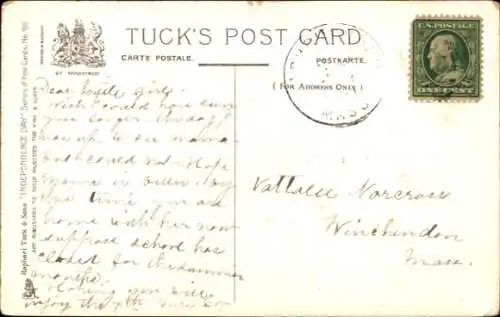 TUCK'S POST CARD
CARTE POSTALE.
POSTKARTE.
( FOR ADDRESS ONLY )
BY APPOINTMENT
Raphael Tuck & Sons' "INDEPENDENCE DAY" Series of Post Cards, No. 109
ART PUBLISHERS TO THEIR MAJESTIES THE KING & QUEEN
U.S. POSTAGE
ONE CENT
MASS
Dear little girl-
Wish I could have seen
you longer.
was up to see mama
but could not. Hope
Mama is better. by
the time you are
home with her now
suppose school has
closed for the summer
months.
Hoping you will
enjoy the 4th
Nattalee Norcross
Winchendon
Mass.